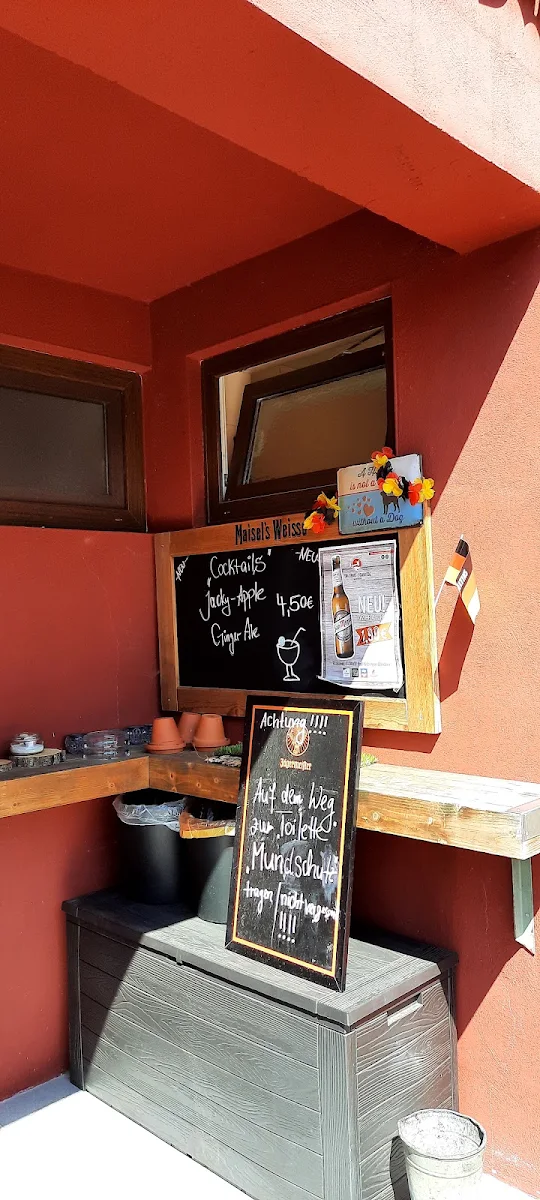 is not a
without a Dog
Maisel's Weisse
-NEU-
"Cocktails"
-NEU
Jacky-Apple 4,50€
Ginger Ale
NEU!
Achtung !!!!
Jägermeister
Auf dem Weg
zur Toilette
Mundschutz
tragen nicht vergessen
!!!!